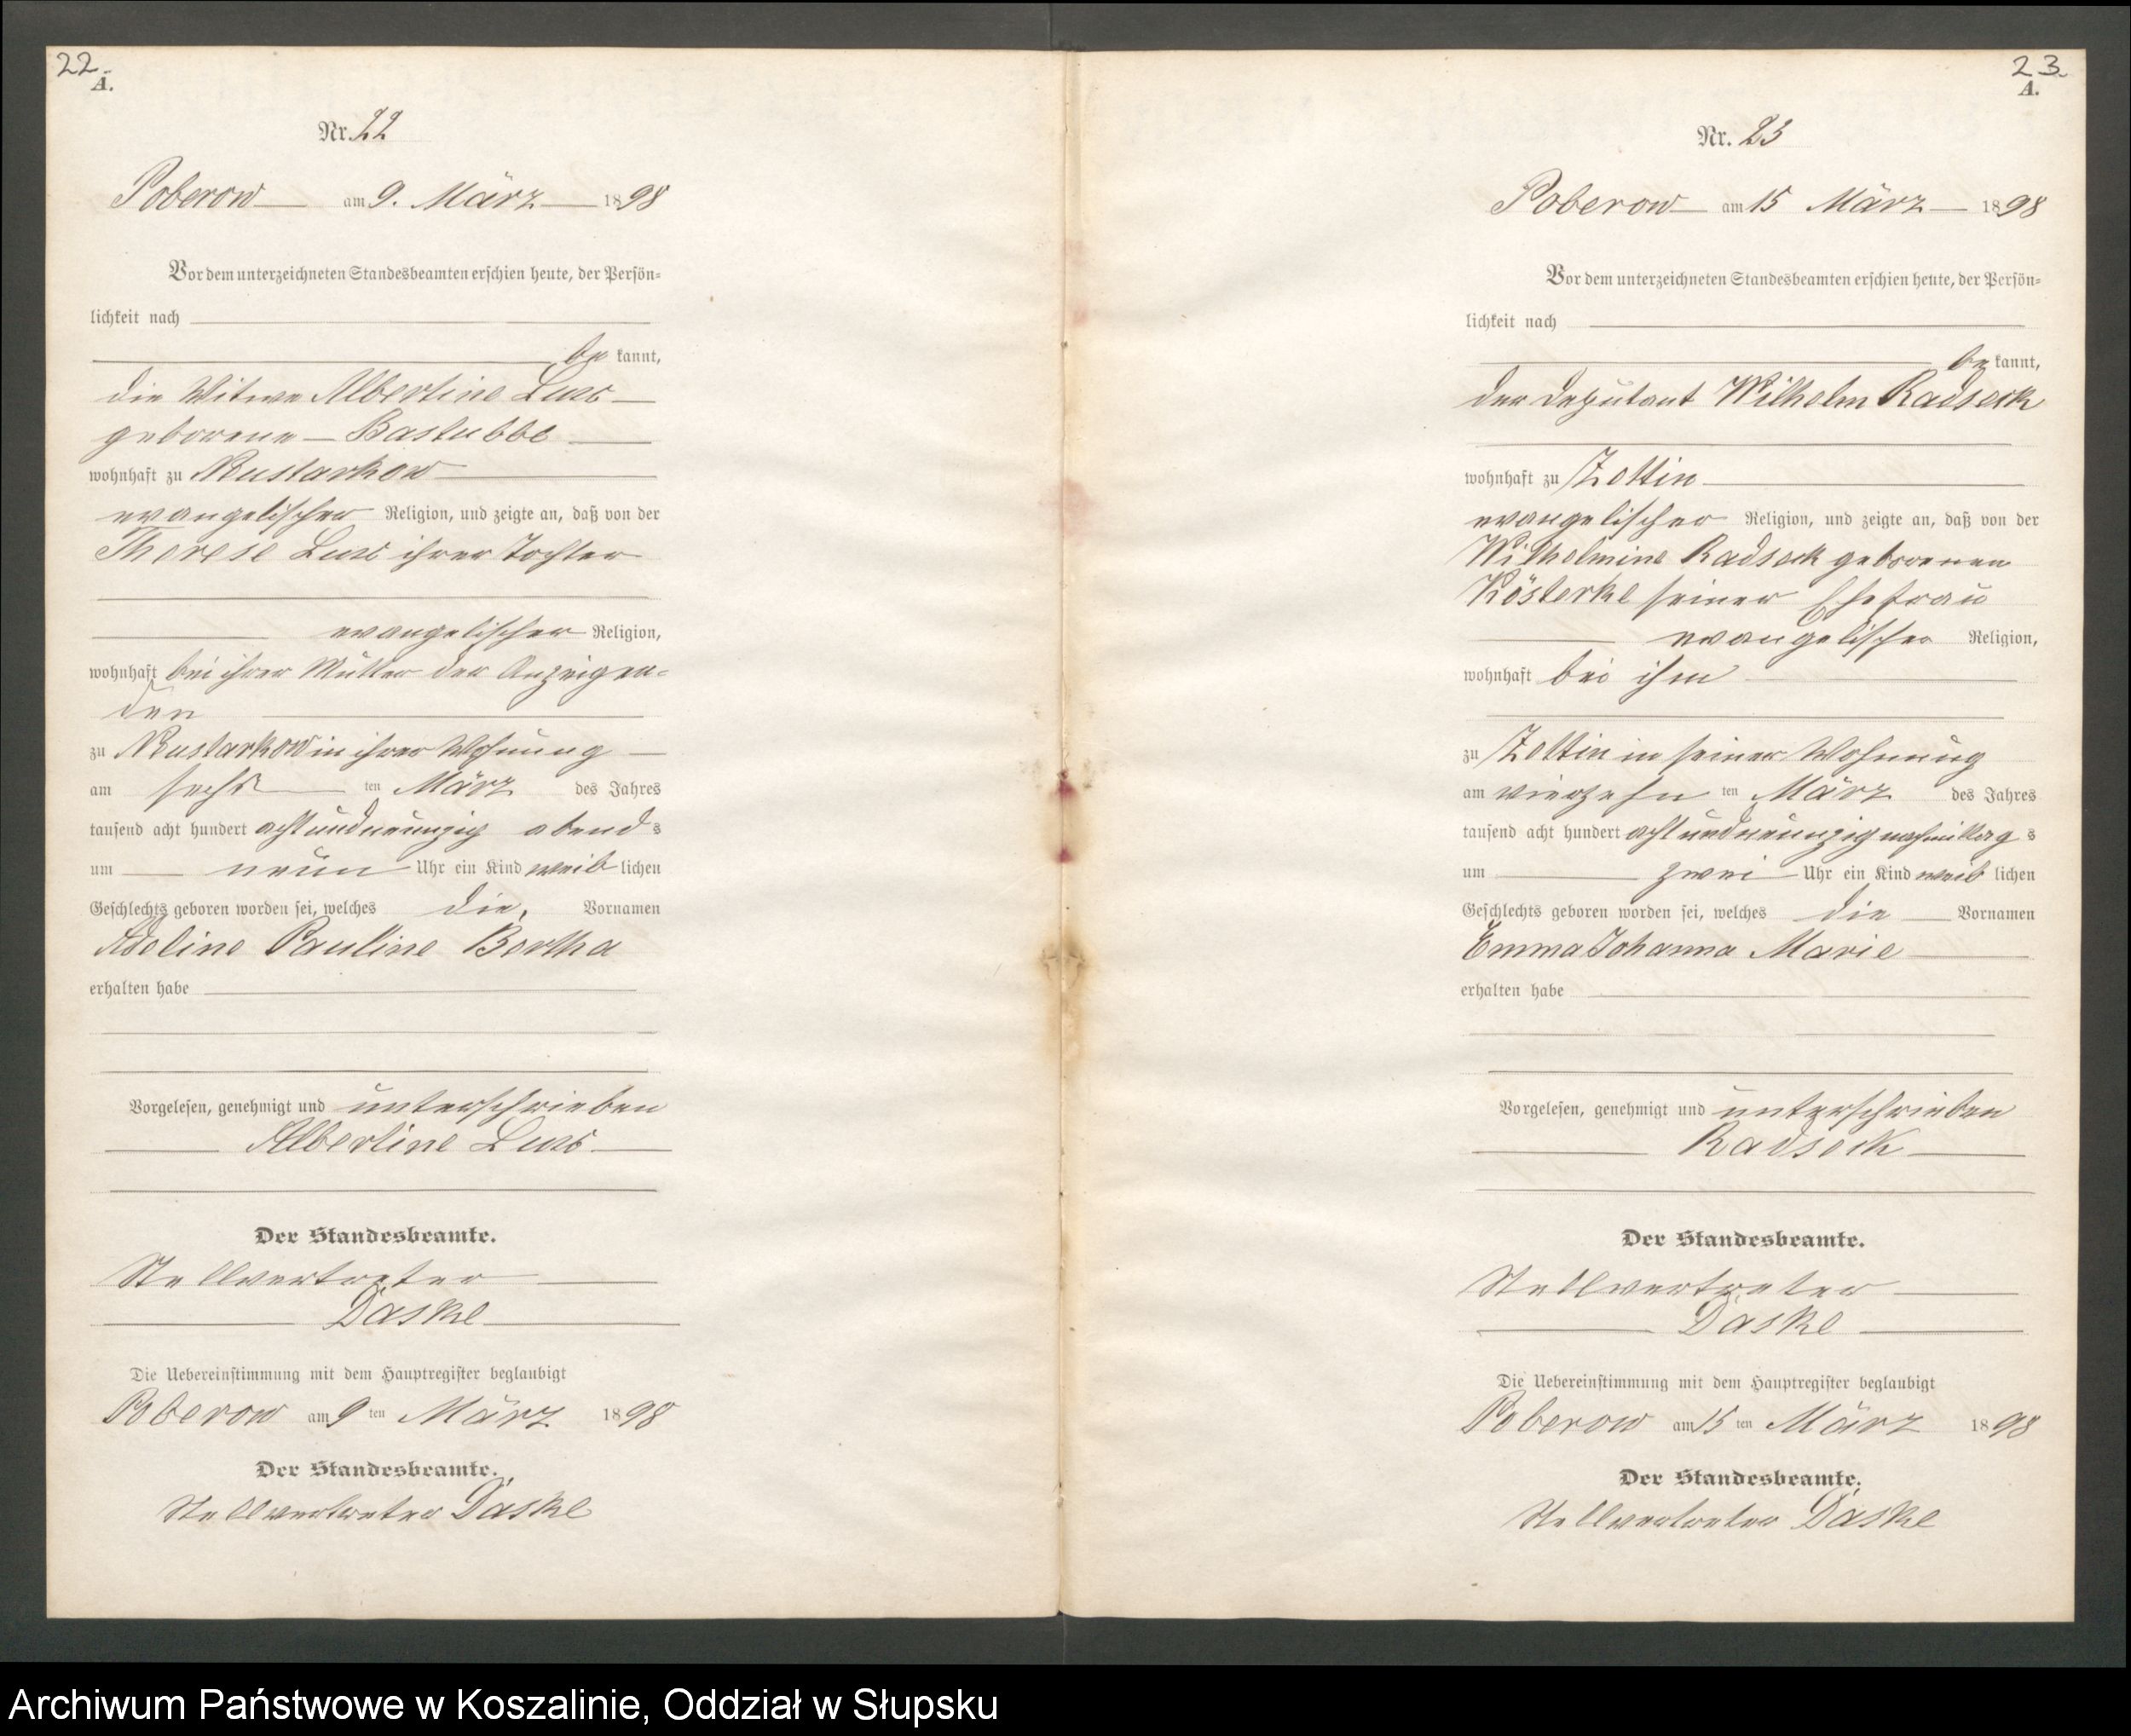 22.
A.
Nr. 22
Poberow am 9. März 1898
Vor dem unterzeichneten Standesbeamten erschien heute, der Persön-
lichkeit nach
be kannt,
die Witwe Albertine
geborene Bastubbe
wohnhaft zu Neustarkow
evangelischer Religion, und zeigte an, daß von der
Therese ihrer Tochter
evangelischer Religion,
wohnhaft bei ihrer Mutter der Anzeigen-
den
zu Neustarkow in ihrer Wohnung
am sechs ten März des Jahres
tausend acht hundert achtundneunzig abend s
um neun Uhr ein Kind weib lichen
Geschlechts geboren worden sei, welches die Vornamen
Adeline Pauline Bertha
erhalten habe
Vorgelesen, genehmigt und unterschrieben
Albertine
Der Standesbeamte.
Stellvertreter
Däske
Die Uebereinstimmung mit dem Hauptregister beglaubigt
Poberow am 9 ten März 1898
Der Standesbeamte.
Stellvertreter Däske
23.
A.
Nr. 23
Poberow am 15 März 1898
Vor dem unterzeichneten Standesbeamten erschien heute, der Persön-
lichkeit nach
be kannt,
der Deputant Wilhelm Radseck
wohnhaft zu Zettin
evangelischer Religion, und zeigte an, daß von der
Wilhelmine Radseck geborenen
Kösterke seiner Ehefrau
evangelischer Religion,
wohnhaft bei ihm
zu Zettin in seiner Wohnung
am vierzehn ten März des Jahres
tausend acht hundert achtundneunzig nachmittag s
um zwei Uhr ein Kind weib lichen
Geschlechts geboren worden sei, welches die Vornamen
Emma Johanna Marie
erhalten habe
Vorgelesen, genehmigt und unterschrieben
Radseck
Der Standesbeamte.
Stellvertreter
Däske
Die Uebereinstimmung mit dem Hauptregister beglaubigt
Poberow am 15 ten März 1898
Der Standesbeamte.
Stellvertreter Däske
Archiwum Państwowe w Koszalinie, Oddział w Słupsku